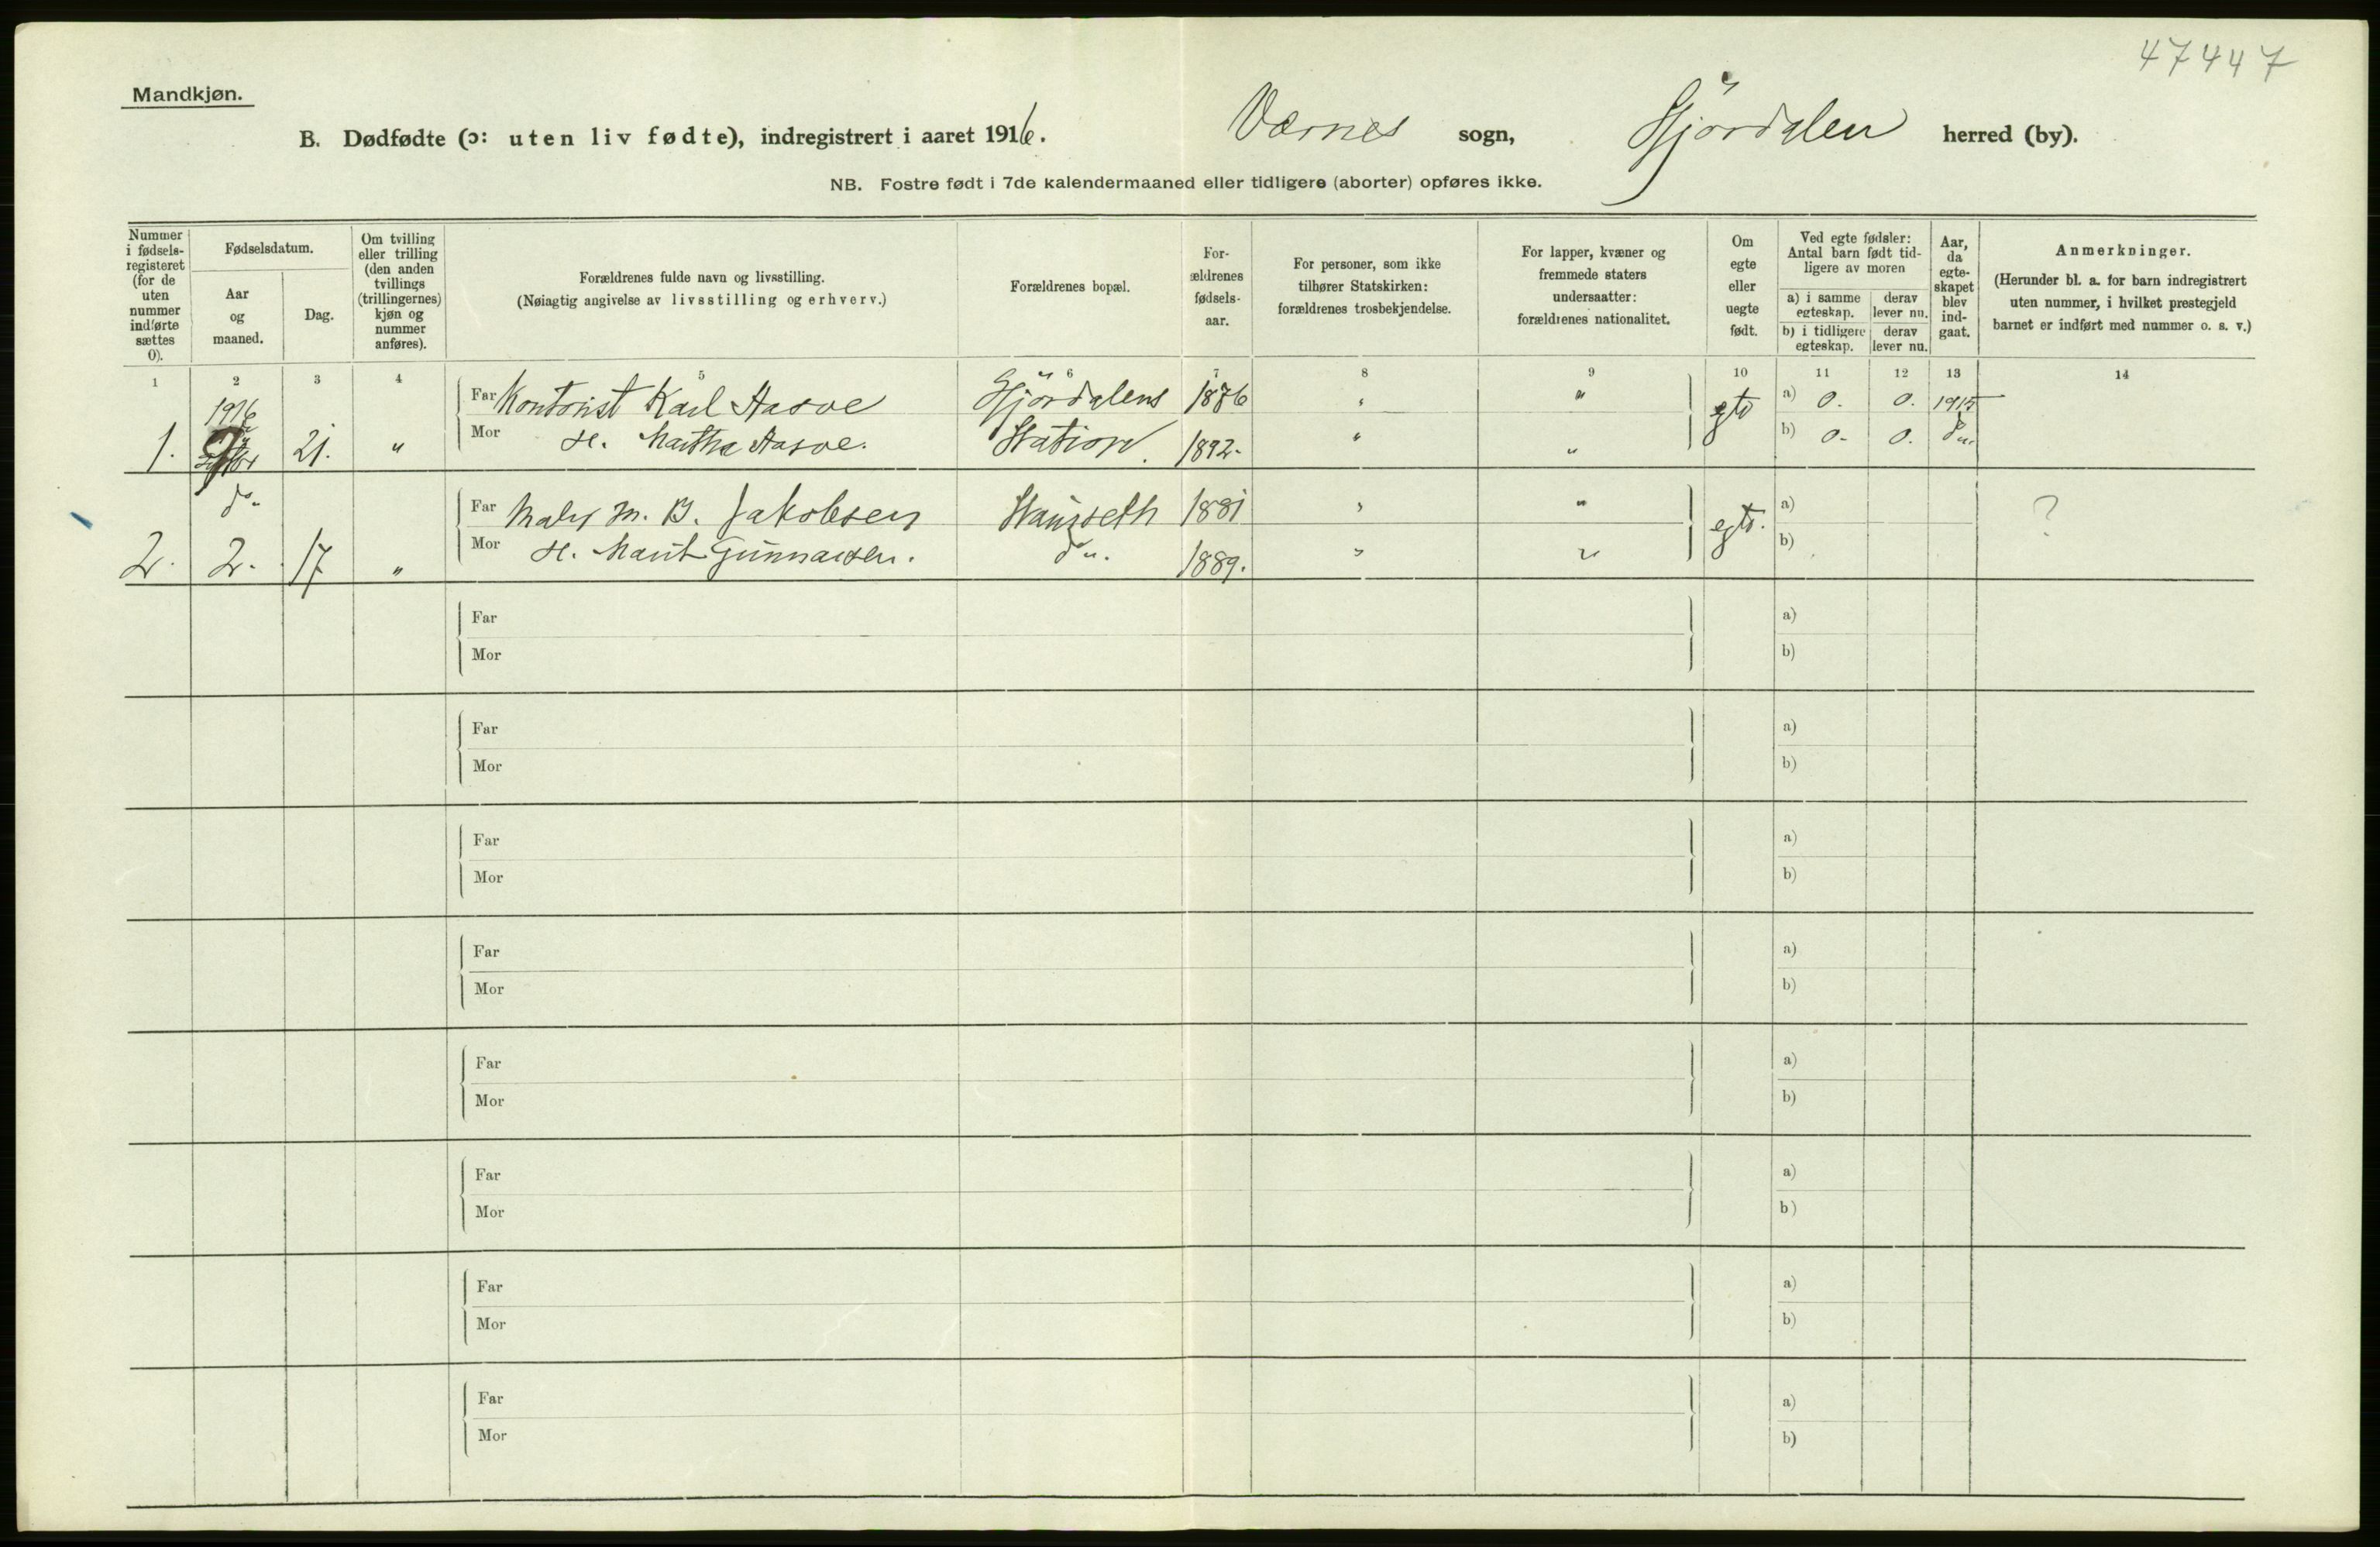 47447
Mandkjøn.
B. Dødfødte (ɔ: uten liv fødte), indregistrert i aaret 1916. Værnes sogn, Stjørdalen herred (by).
NB. Fostre født i 7de kalendermaaned eller tidligere (aborter) opføres ikke.
Nummer i fødsels-registeret (for de uten nummer indførte sættes 0).
Fødselsdatum.
Aar og maaned.
Dag.
Om tvilling eller trilling (den anden tvillings (trillingernes) kjøn og nummer anføres).
Forældrenes fulde navn og livsstilling.
(Nøiagtig angivelse av livsstilling og erhverv.)
Forældrenes bopæl.
For-ældrenes fødsels-aar.
For personer, som ikke tilhører Statskirken: forældrenes trosbekjendelse.
For lapper, kvæner og fremmede staters undersaatter: forældrenes nationalitet.
Om egte eller uegte født.
Ved egte fødsler: Antal barn født tid-ligere av moren
a) i samme egteskap.
derav lever nu.
b) i tidligere egteskap.
derav lever nu.
Aar, da egte-skapet blev ind-gaat.
Anmerkninger.
(Herunder bl. a. for barn indregistrert uten nummer, i hvilket prestegjeld barnet er indført med nummer o. s. v.)
1 2 3 4 5 6 7 8 9 10 11 12 13 14
1916
1. 21. "
Far Kontorist Karl Aasve Stjørdalens 1876 " " egte a) 0. 0. 1915
Mor H. Martha Aasve. Station. 1892. " " b) 0. 0. do.
do.
2. 2. 17 "
Far Maler M. B. Jakobsen 1881 " " egte. a) ?
Mor H. Marit Gunnarsen. do. 1889. " " b)
Far a)
Mor b)
Far a)
Mor b)
Far a)
Mor b)
Far a)
Mor b)
Far a)
Mor b)
Far a)
Mor b)
Far a)
Mor b)
Far a)
Mor b)